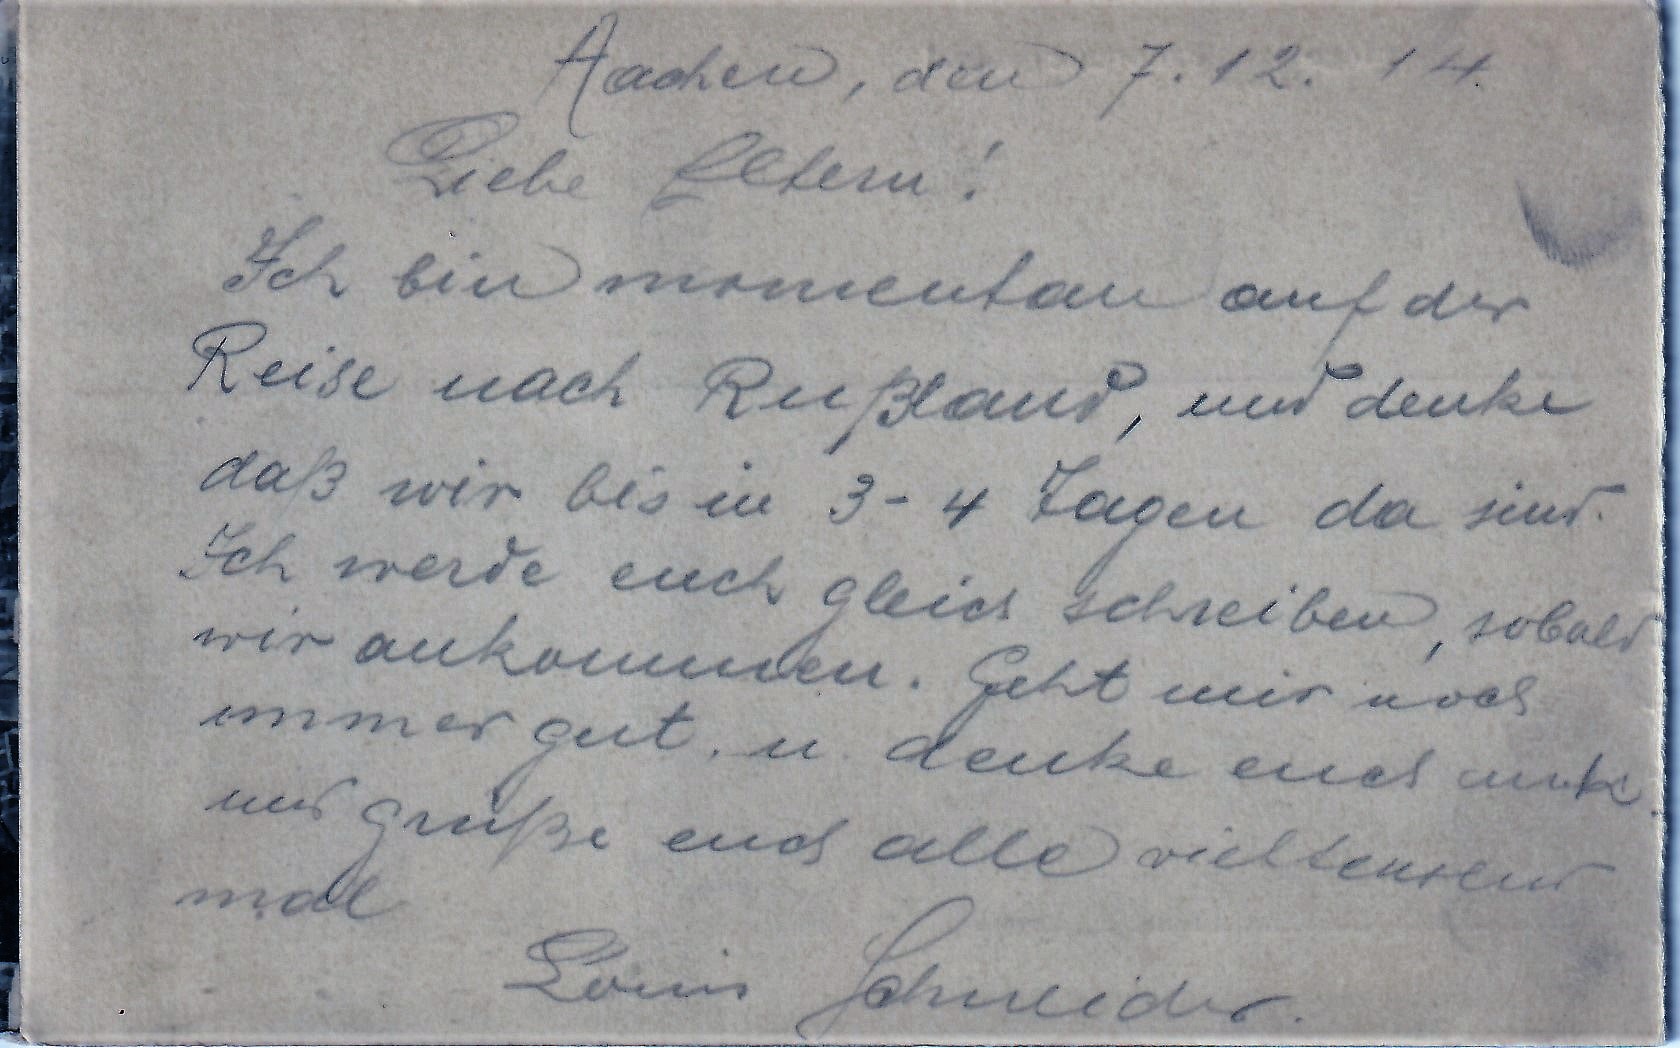 Aachen, den 7. 12. 14.
Liebe Eltern!
Ich bin momentan auf der
Reise nach Rußland, und denke
daß wir bis in 3-4 Tagen da sind.
Ich werde euch gleich schreiben, sobald
wir ankommen. Geht mir noch
immer gut. u. denke euch
und grüße euch alle vieltausend
mal
Louis Schneider.